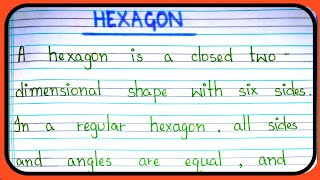 HEXAGON
A hexagon is a closed two-
dimensional shape with six sides.
In a regular hexagon, all sides
and angles are equal, and